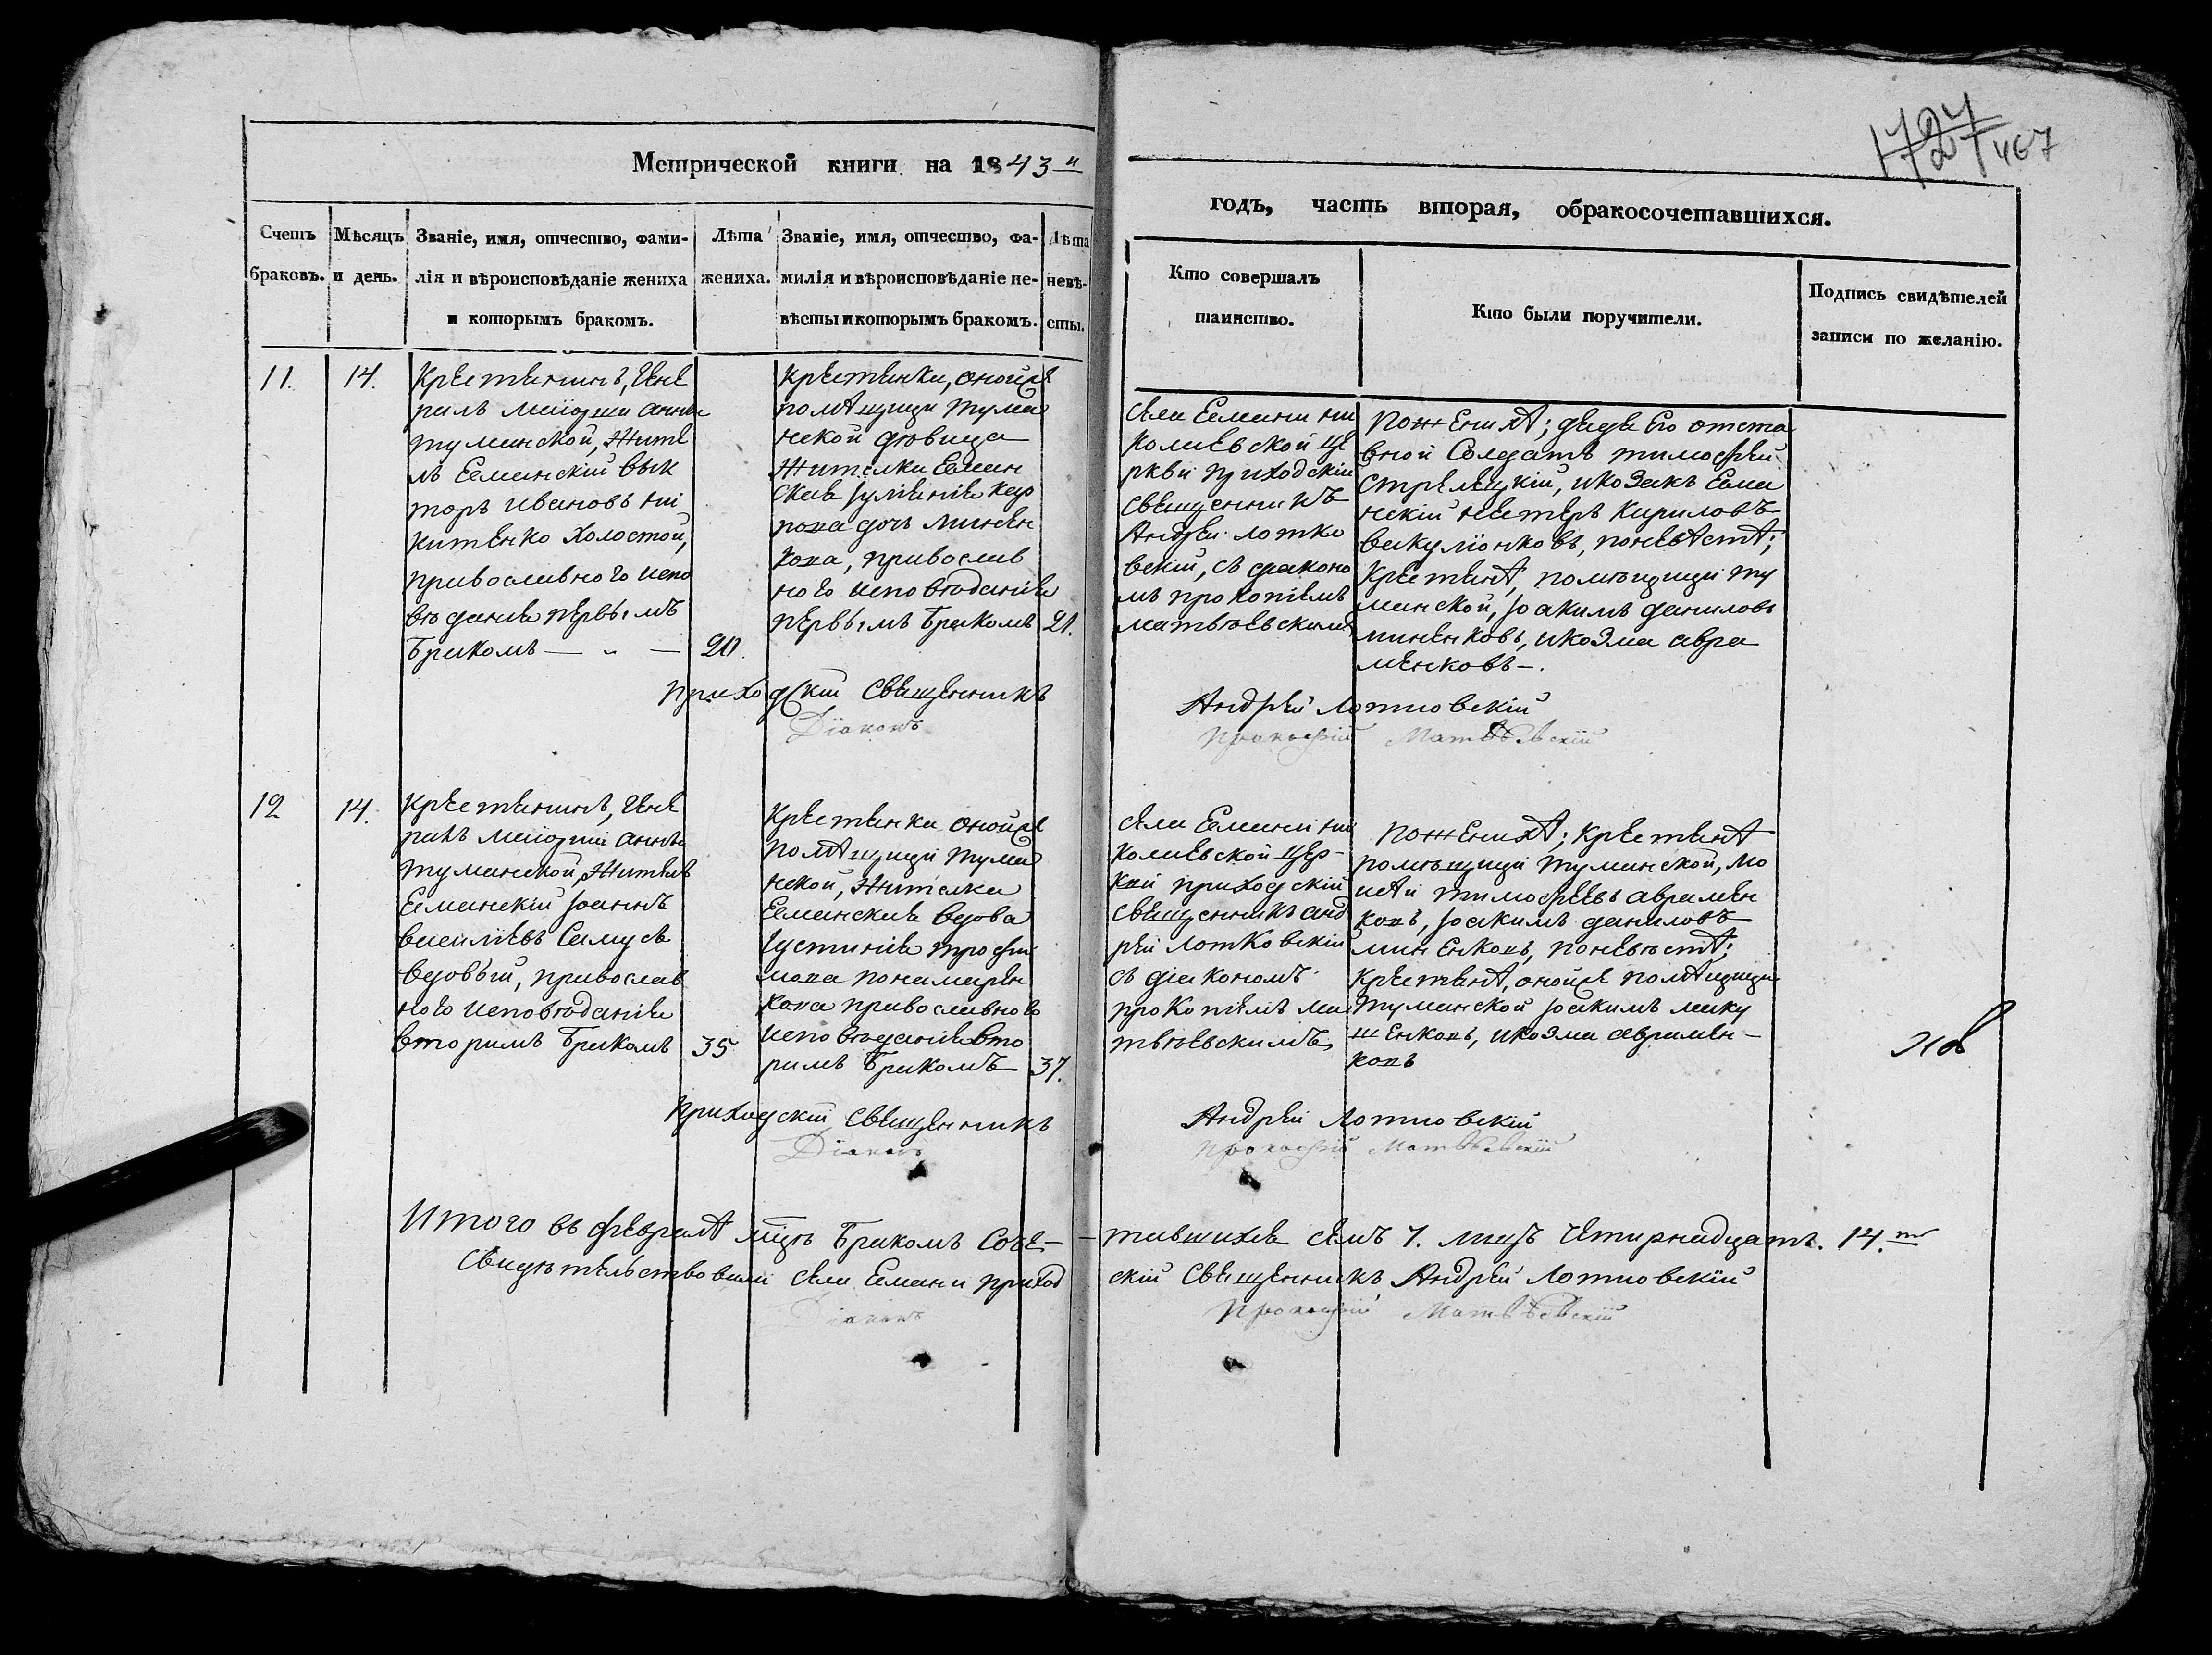 727 467
Метрической книги на 1843 и
годъ, часть вторая, о бракосочетавшихся.
Счетъ браковъ.
Мѣсяцъ и день.
Званіе, имя, отчество, фами-
лія и вѣроисповѣданіе жениха
и которымъ бракомъ.
Лѣта
жениха.
Званіе, имя, отчество, фа-
милія и вѣроисповѣданіе не-
вѣсты и которымъ бракомъ.
Лѣта
невѣ-
сты.
Кто совершалъ
таинство.
Кто были поручители.
Подпись свидѣтелей
записи по желанію.
11.
14.
Крестянинъ, Гене
ралъ маіорши анны
туманской, жите
ль Есманскій Вык
торъ Ивановъ Ни
китенко холостой,
православного испо
вѣданія первымъ
бракомъ — " —
20.
Крестянки, оной же
помѣщици Тума
нской дѣвица
жителка Есман
ская Іуліянія Кар
пова дочь Минен
кова, православ
ного исповѣданія
первымъ бракомъ
21.
Села Есмани Ни
колаевской це
ркви приходскій
священникъ
Андрей Лотко
вскій, съ діаконо
мъ Прокопіемъ
Матвѣевскимъ
По женихѣ; дядя его отста
вной Солдатъ Тимофей
Стрелецкій, и козакъ Есма
нскій Нестеръ Кириловъ
Вакуліонковъ, по невѣстѣ;
Крестянѣ, помѣщици Ту
манской, Іоакимъ Даниловъ
Миненковъ, и Козма Авра
менковъ —.
Приходскій Священникъ Андрей Лотковскій
Діаконъ Прокофій Матвѣевскій
12
14.
Крестянинъ, Гене
ралъ маіорши анны
Туманской, житель
Есманскій Іоаннъ
Василіевъ Самусь
вдовый, православ
ного исповѣданія
вторимъ бракомъ
35
Крестянка оной же
помѣщици Тума
нской, жителка
Есманская вдова
Іустинія Трофи
мова Понамарен
кова православного
исповѣданія вто
римъ бракомъ
37.
Села Есмани Ни
колаевской цер-
кви приходскій
священникъ Анд
рей Лотковскій
съ діакономъ
Прокопіемъ Ма
твѣевскимъ
По женихѣ; крестянѣ
помѣщици Туманской, Мо
исѣй Тимофеевъ Авramен
ковъ, Іоакимъ Даниловъ
Миненковъ, по невѣстѣ;
Крестянѣ, оной же помѣщици
Туманской Іоакимъ Маку
шенковъ, и Козма Авраmен-
ковъ
Приходскій Священникъ Андрей Лотковскій
Діаконъ Прокофій Матвѣевскій
Итого въ февралѣ мцѣ бракомъ соче- -тавшихся семъ 7. лицъ четирнадцать. 14.
Свидѣтельствовали села Есмани приход скій Священникъ Андрей Лотковскій
Діаконъ Прокофій Матвѣевскій